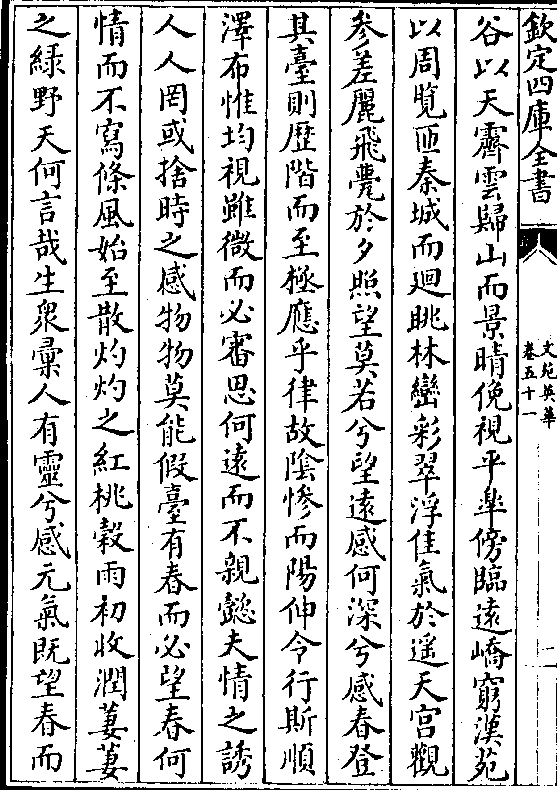 欽定四庫全書
文苑英華
卷五十一
一
谷以天霽雲歸山而景晴俛視平臯傍臨遠嶠窮漢苑
以周覽匝秦城而迴眺林巒彩翠浮佳氣於遥天宫觀
參差麗飛甍於夕照望莫若兮望遠感何深兮感春登
其臺則歴階而至極應乎律故陰慘而陽伸令行斯順
澤布惟均視雖微而必審思何遠而不親懿夫情之誘
人人罔或捨時之感物物莫能假臺有春而必望春何
情而不寫條風始至散灼灼之紅桃穀雨初收潤萋萋
之緑野天何言哉生衆彚人有靈兮感元氣既望春而